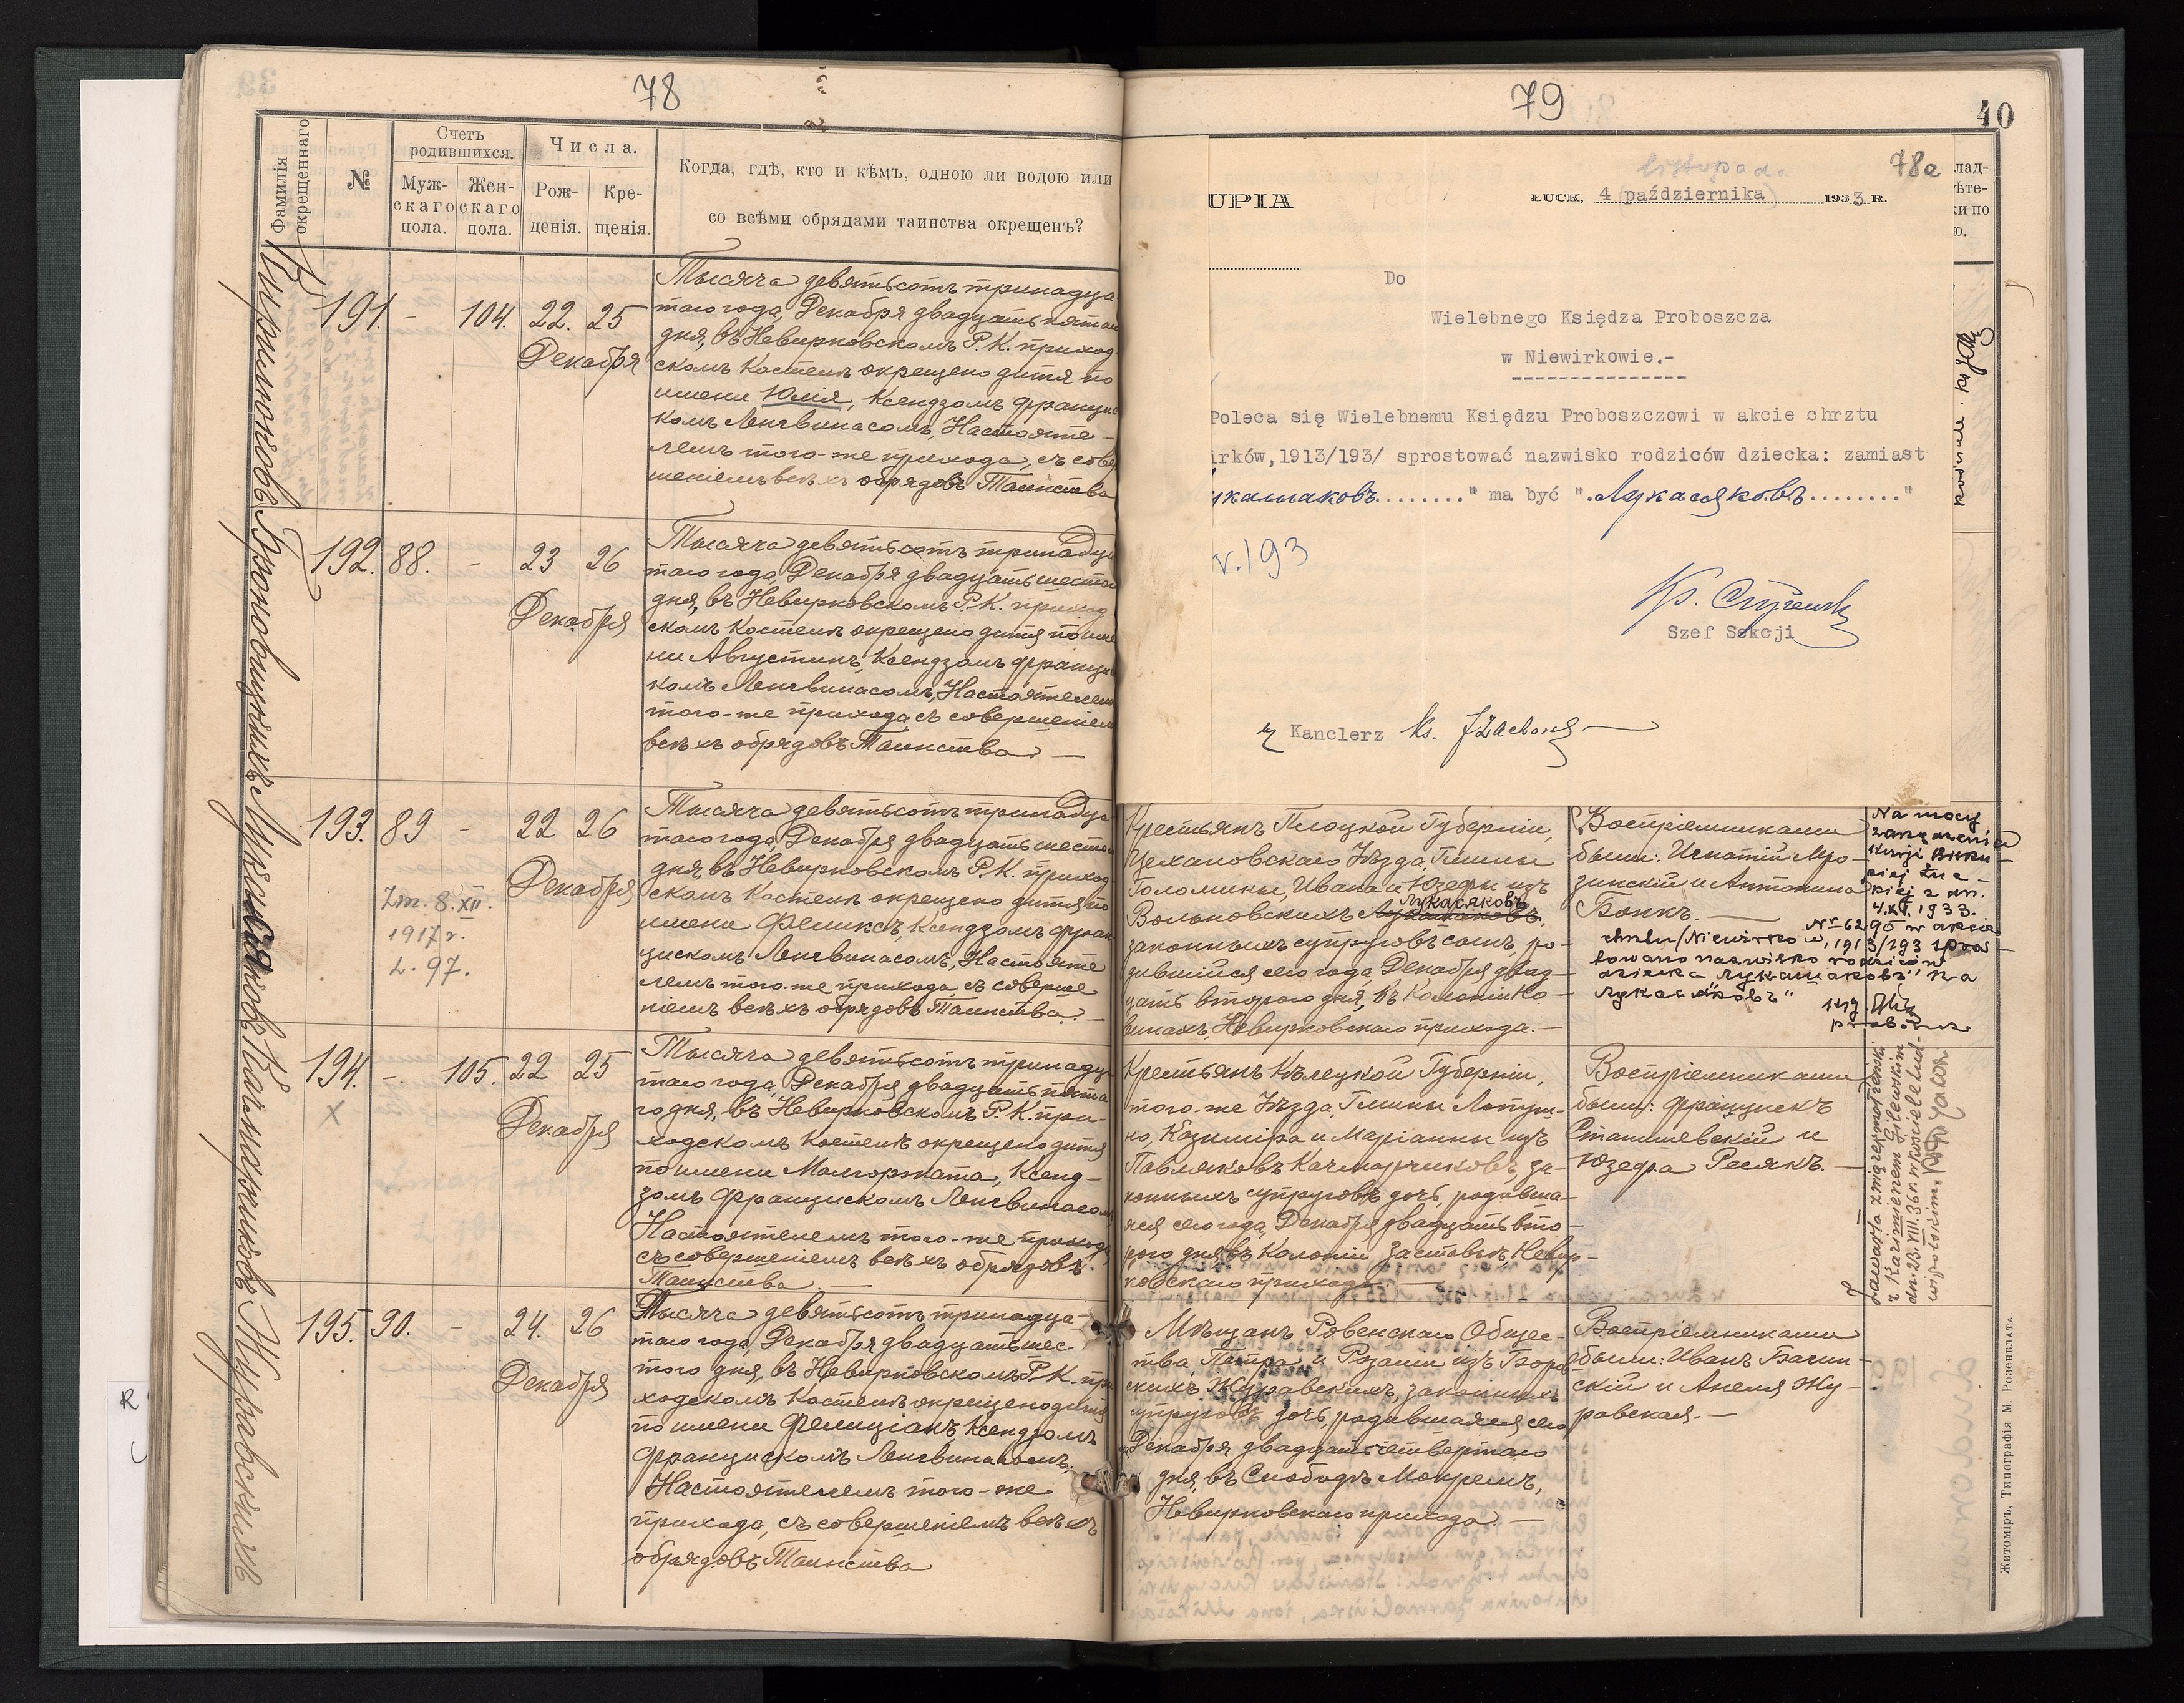 78
Фамилія окрещеннаго
№
Счетъ родившихся.
Муж-
скаго
пола.
Жен-
скаго
пола.
Числа.
Рож-
денія.
Кре-
щенія.
Когда, гдѣ, кто и кѣмъ, одною ли водою или
со всѣми обрядами таинства окрещенъ?
191. - 104. 22. 25
Декабря
Тысяча девятьсотъ тринадца
таго года, Декабря двадцать пятаго
дня, въ Невирковскомъ Р.К. приход-
скомъ Костелѣ окрещено дитя по
имени Юлія, Ксендзомъ Францис
комъ Ленгвинасомъ, Настояте-
лемъ того-же прихода, съ совер
шеніемъ всѣхъ обрядовъ Таинства
Броновицкихъ
192. 88. - 23 26
Декабря
Тысяча девятьсотъ тринадца
таго года, Декабря двадцать шестого
дня, въ Невирковскомъ Р.К. приход
скомъ Костелѣ окрещено дитя по име
ни Августинъ, Ксендзомъ Францис
комъ Ленгвинасомъ, Настоятелемъ
того-же прихода съ совершеніем
всѣхъ обрядовъ Таинства. —
193. 89 - 22 26
Декабря
Zm. 8.XII.
1917 r.
L. 97.
Тысяча девятьсотъ тринадца-
таго года, Декабря двадцать шестого
дня въ Невирковскомъ Р.К. приход-
скомъ Костелѣ окрещено дитя по
имени Феликсъ, Ксендзомъ Фран
цискомъ Ленгвинасомъ, Настояте
лемъ того-же прихода съ соверше
ніемъ всѣхъ обрядовъ Таинства. —
Качмарчиковъ
194. - 105. 22 25
X
Декабря
Тысяча девятьсотъ тринадца
таго года, Декабря двадцать пята
го дня, въ Невирковскомъ Р.К. при-
ходскомъ Костелѣ окрещено дитя
по имени Малгоржата, Ксенд-
зомъ Францискомъ Ленгвинасомъ
Настоятелемъ того-же прихода
съ совершеніемъ всѣхъ обрядовъ
Таинства —
Журавскихъ
195. 90. - 24. 26
Декабря
Тысяча девятьсотъ тринадца-
таго года, Декабря двадцать шес
того дня, въ Невирковскомъ Р.К. при
ходскомъ Костелѣ окрещено дитя
по имени Фелиціанъ Ксендзомъ
Францискомъ Ленгвинасомъ,
Настоятелемъ того-же
прихода, съ совершеніемъ всѣхъ
обрядовъ Таинства
79
40
78a
UPIA
listopada
ŁUCK, 4 (października) 1933 R.
Do
Wielebnego Księdza Proboszcza
w Niewirkowie.-
Poleca się Wielebnemu Księdzu Proboszczowi w akcie chrztu
irków,1913/193/ sprostować nazwisko rodziców dziecka: zamiast
укашаковъ........" ma być ".Лукасяковъ........"
r.193
Szef Sekcji
Kanclerz ks.
Крестьянъ Плоцкой Губерніи,
Цехановскаго Уѣзда, Гмины
Голомины, Ивана и Юзефы изъ
Лукасяковъ
Вольковскихъ Лукашаковъ,
законныхъ супруговъ сынъ, ро-
дившійся сего года, Декабря двад-
цать второго дня, въ Колоніи Ко-
винахъ, Невирковскаго прихода. —
Воспріемниками
были: Игнатій Мро-
зинскій и Антонина
Бонкъ. —
Na mocy
zarządzenia
Kurji Bisku-
piej Łuc-
kiej z dn.
4.XI.1933.
Nr 6290 w akcie
chrztu/Niewirków, 1913/193 spros-
towano nazwisko rodziców
dziecka "Лукашаковъ" na
"Лукасяковъ"
proboszcz
Крестьянъ Кѣлецкой Губерніи,
того-же Уѣзда, Гмины Лопуш-
но, Казиміра и Маріанны изъ
Павляковъ Качмарчиковъ, за-
конныхъ супруговъ дочь, родивша-
яся сего года, Декабря двадцать вто-
рого дня въ Колоніи Заставье, Невир-
ковскаго прихода. —
Воспріемниками
были: Францискъ
Сташевскій и
Юзефа Ресякъ. —
Zawarła zw. małżeński
z Kazimierzem Gilewskim
dn. 23.VIII.36 r. w kościele Lud-
wipolskim.
Мѣщанъ Ровенскаго Общес-
тва, Петра и Розаліи изъ
скихъ Журавскихъ, законныхъ
супруговъ дочь, родившаяся сего
Декабря двадцать четвертаго
дня, въ Слободѣ Мокремъ,
Невирковскаго прихода. —
Воспріемниками
были: Иванъ Бачин-
скій и Анеля Жу-
равская. —
Житоміръ, Типографія М. Розенблата.